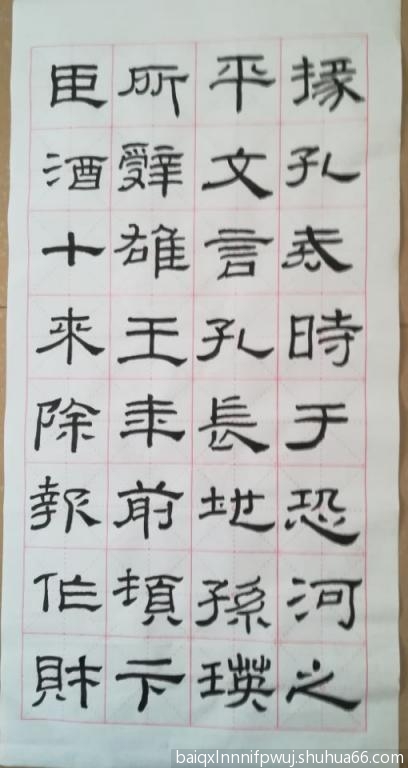 掾孔時于恐河之
平文言孔長地孫瑛
所辭雄王年前頓下
臣酒十來除報作財
baiqxlnnnifpwuj.shuhua66.com